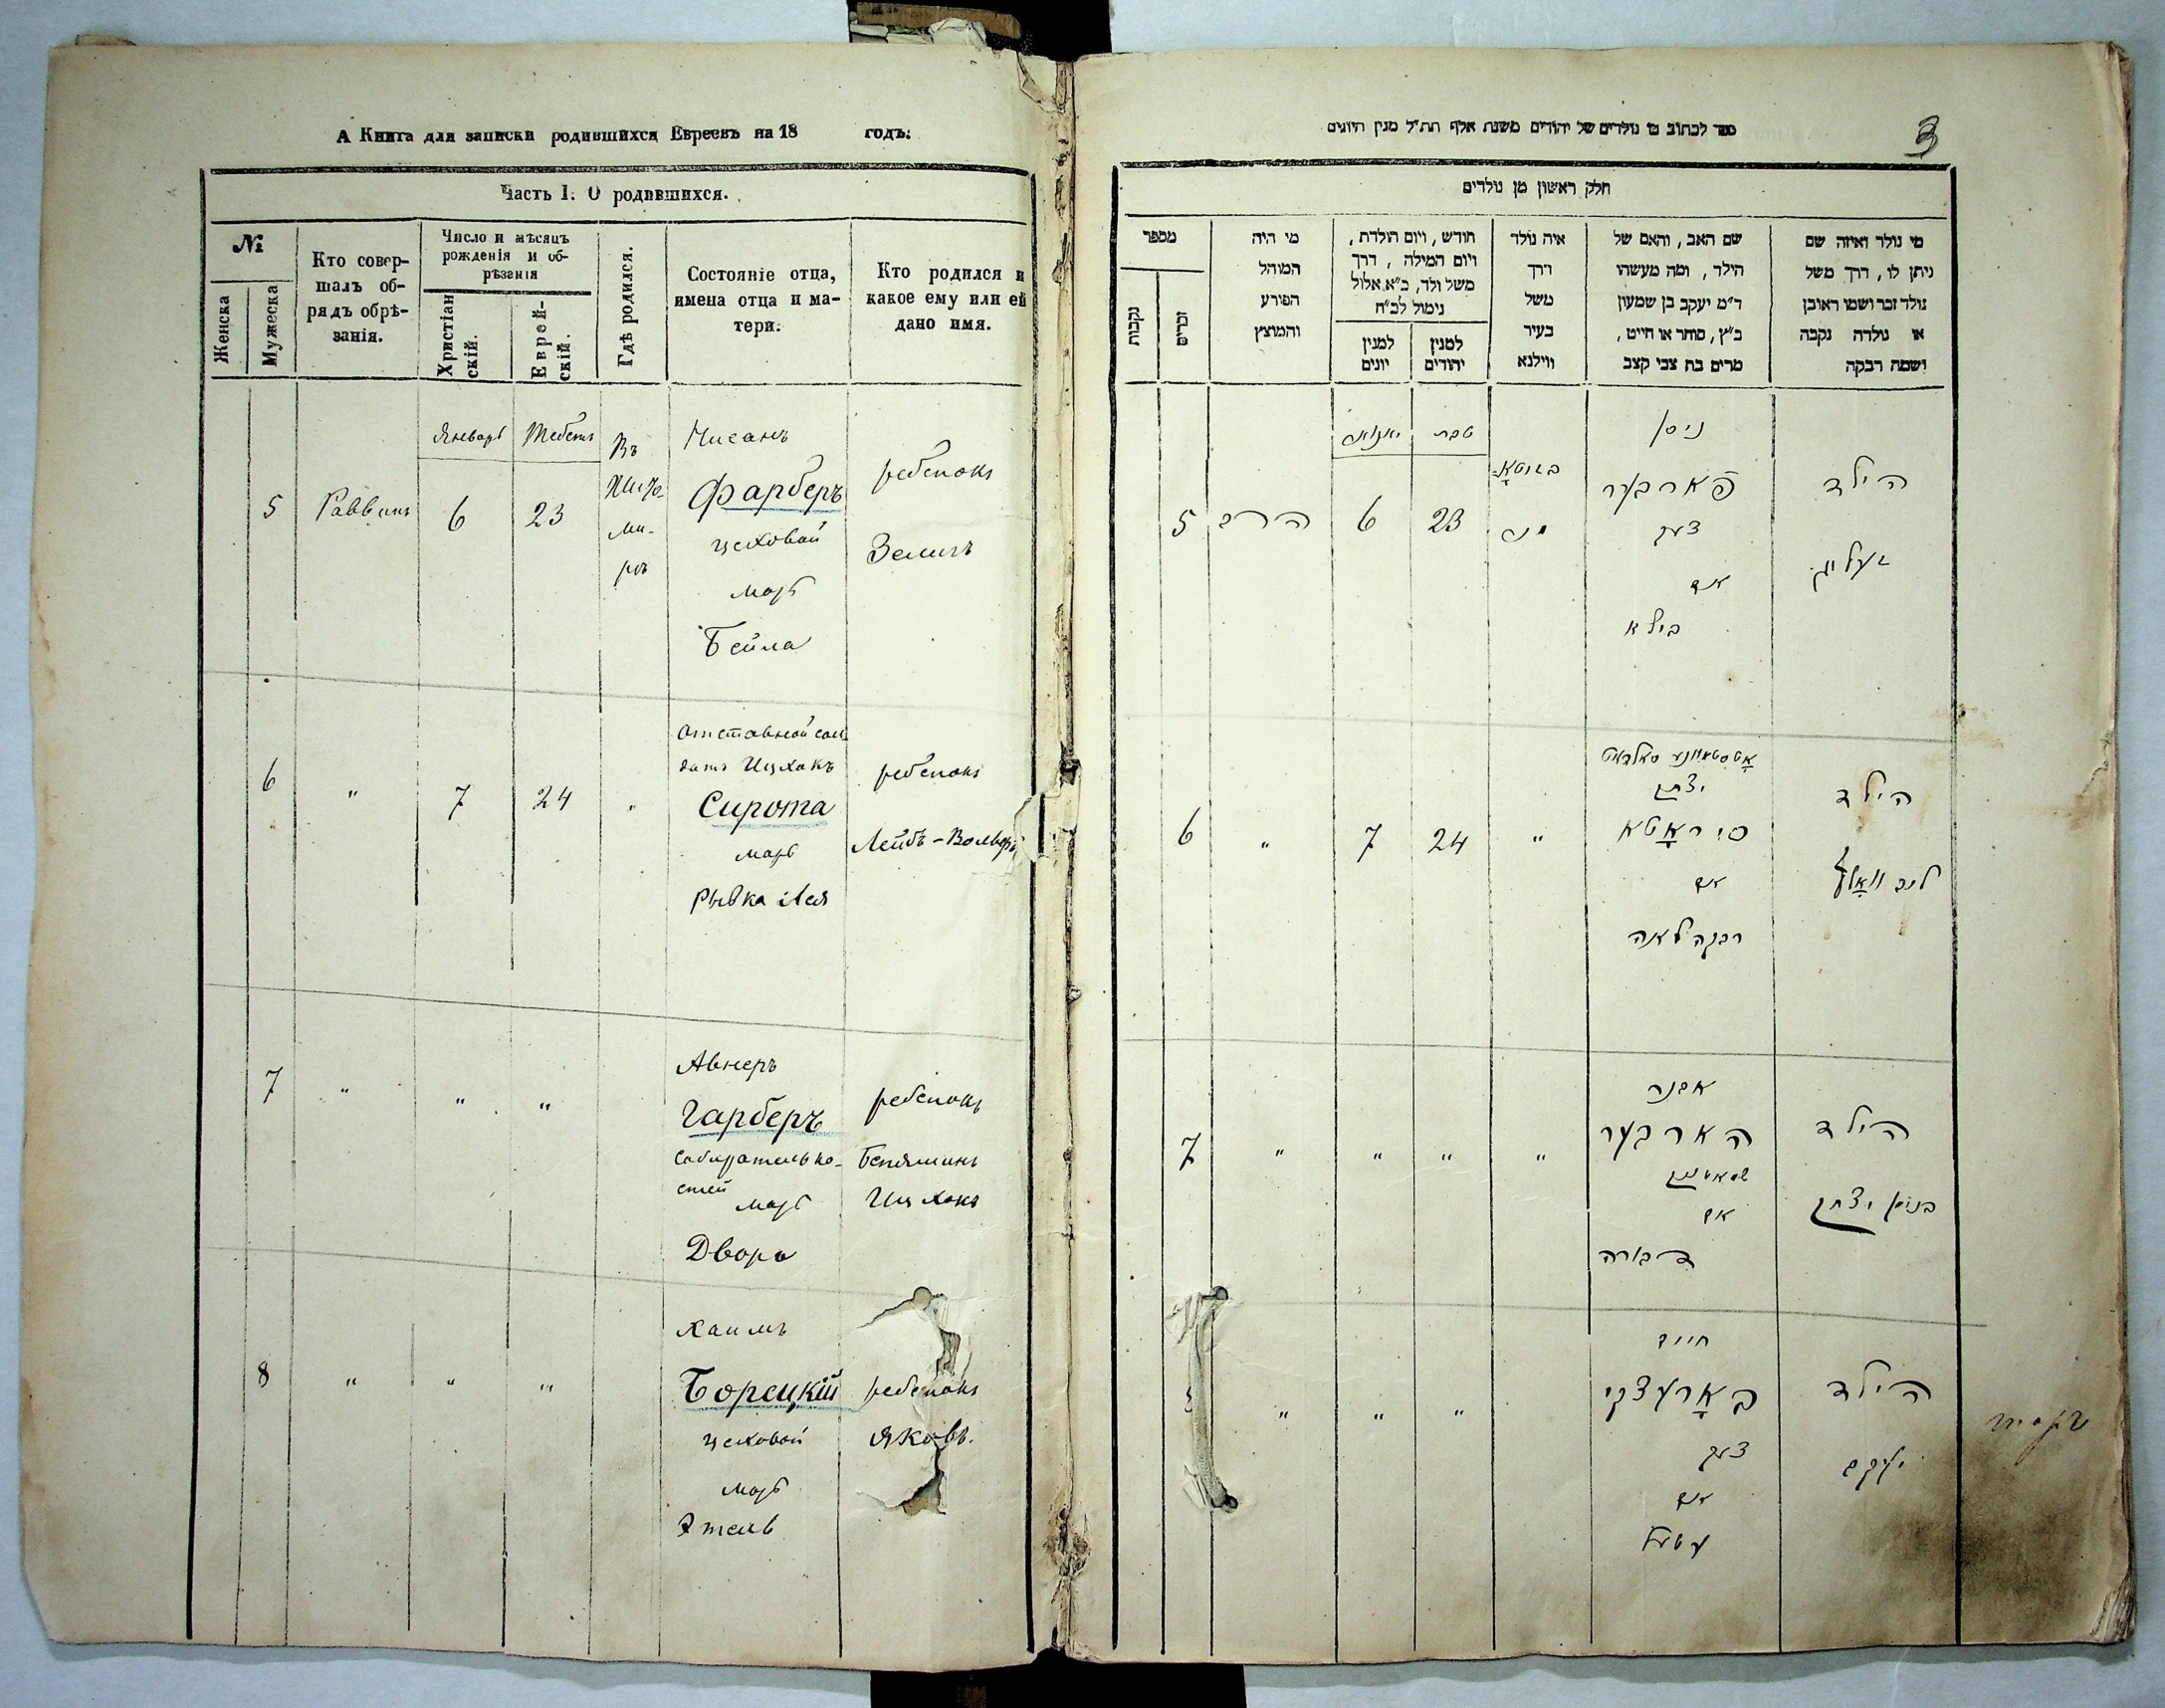 А Книга для записки родившихся Евреевъ на 18 годъ.
Часть I. О родившихся.
№
Женска
Мужеска
Кто совер-
шалъ об-
рядъ обрѣ-
занія.
Число и мѣсяцъ
рожденія и об-
рѣзанія
Христіан
скій.
Еврей-
скій.
Гдѣ родился.
Состояніе отца,
имена отца и ма-
тери.
Кто родился и
какое ему или ей
дано имя.
5
Раввинъ
Январь
6
Тебетъ
23
Въ
Жито-
ми-
рѣ
Нисанъ
Фарберъ
цеховой
мать
Бейла
ребенокъ
Зелигъ
6
"
7
24
"
Отставной сол-
датъ Ицхокъ
Сирота
мать
Рывка Лея
ребенокъ
Лейбъ-Вольфъ
7
"
"
"
Авнеръ
Гарберъ
собиратель ко-
стей
мать
Двора
ребенокъ
Беніаминъ
Ицхокъ
8
"
"
"
Хаимъ
Борецкій
цеховой
мать
Этель
ребенокъ
Яковъ.
ספר לכתוב בו נולדים של יהודים משנת אלף תת״ל מנין היונים
3
חלק ראשון מן נולדים
מי נולד ואיזה שם
ניתן לו, דרך משל
נולד זכר ושמו ראובן
או נולדה נקבה
ושמה רבקה
שם האב, והאם של
הילד, ומה מעשהו
ד״מ יעקב בן שמעון
כ״ץ, סוחר או חייט,
מרים בת צבי קצב
איה נולד
דרך
משל
בעיר
ווילנא
חודש, ויום הולדת,
ויום המילה, דרך
משל ולד, כ״א אלול
נימול לכ״ח
למנין
יהודים
למנין
יונים
מי היה
המוהל
הפורע
והמוצץ
מספר
זכרים
נקבות
הילד
זעליג
ניסן
פארבער
צעך
אם
ביילא
טבת
23
יאנואר
6
הרב
5
הילד
ליב וואלף
יצחק
סיראָטא
אם
רבקה לאה
"
24
7
"
6
הילד
בנימין יצחק
אבנר
הארבער
אם
דבורה
"
"
"
"
7
הילד
יעקב
חיים
באָרעצקי
צעך
אם
עטיל
"
"
"